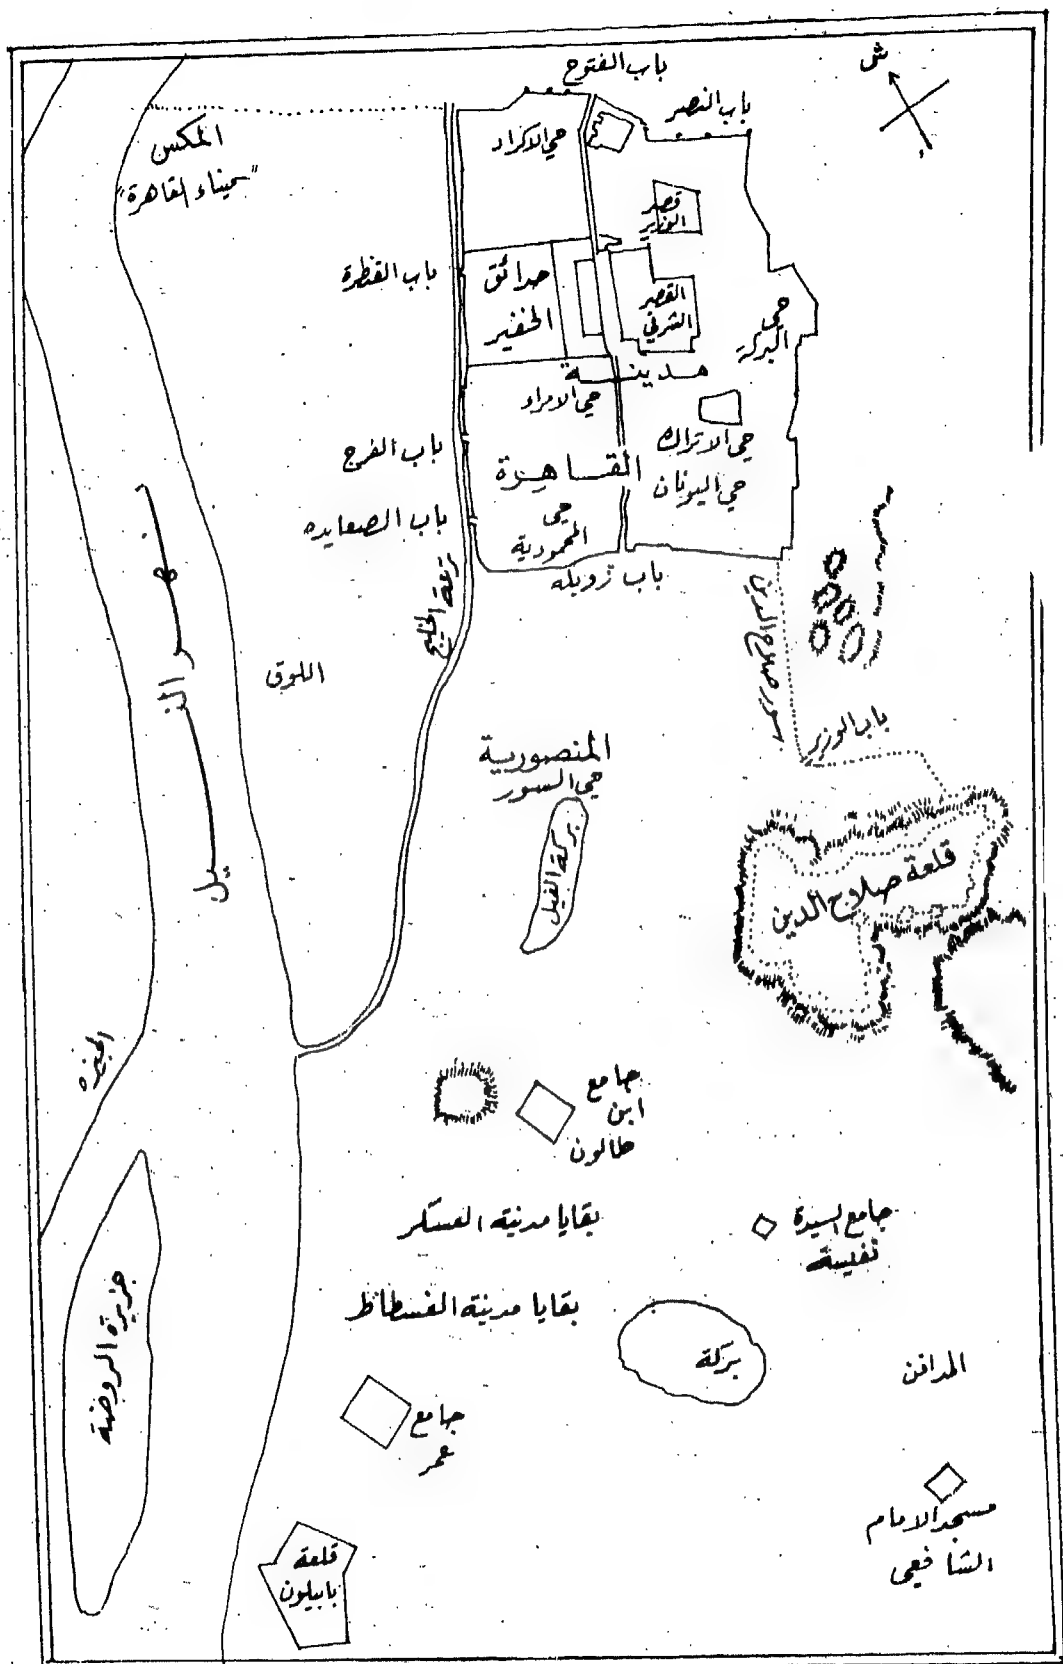 ش
باب الفتوح
باب النصر
حي الاكراد
المكس
"ميناء القاهرة"
قصر
الوزير
باب القنطرة
حدائق
القصر
الشرقي
حي
البركة
مدينة
حي الامراء
حي الاتراك
القاهرة
حي اليونان
باب الفرج
باب الصعايده
حي
المحمودية
باب زويله
ترعة الخليج
سور صلاح الدين
نهر النيل
اللوق
باب الوزير
المنصورية
حي السور
بركة الفيل
قلعة صلاح الدين
الجيزه
جامع
ابن
طالون
بقايا مدينة العسكر
جامع السيدة
نفيسة
بقايا مدينة الفسطاط
جزيرة الروضة
بركة
المدافن
جامع
عمر
مسجد الامام
الشافعي
قلعة
بابيلون